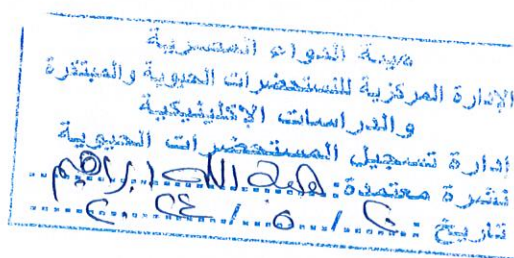 هيئة الدواء المصرية
الإدارة المركزية للمستحضرات الحيوية والمبتكرة
والدراسات الإكلينيكية
إدارة تسجيل المستحضرات الحيوية
نشرة معتمدة: هبة الله ابراهيم
تاريخ: ٢٠٢٤ / ٥ /